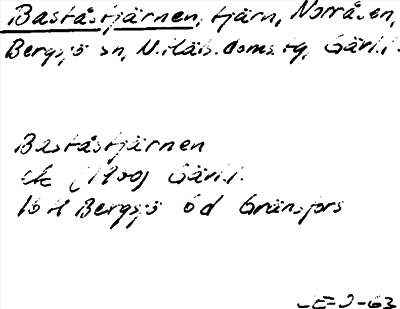 Baståstjärnen, tjärn, Norråsen,
Bergsjö sn, N. Häls. doms. tg, Gävl.l.
Baståstjärnen
ek (1900) Gävl.l.
16 H Bergsjö 6 d Gränsfors
-E=J-63